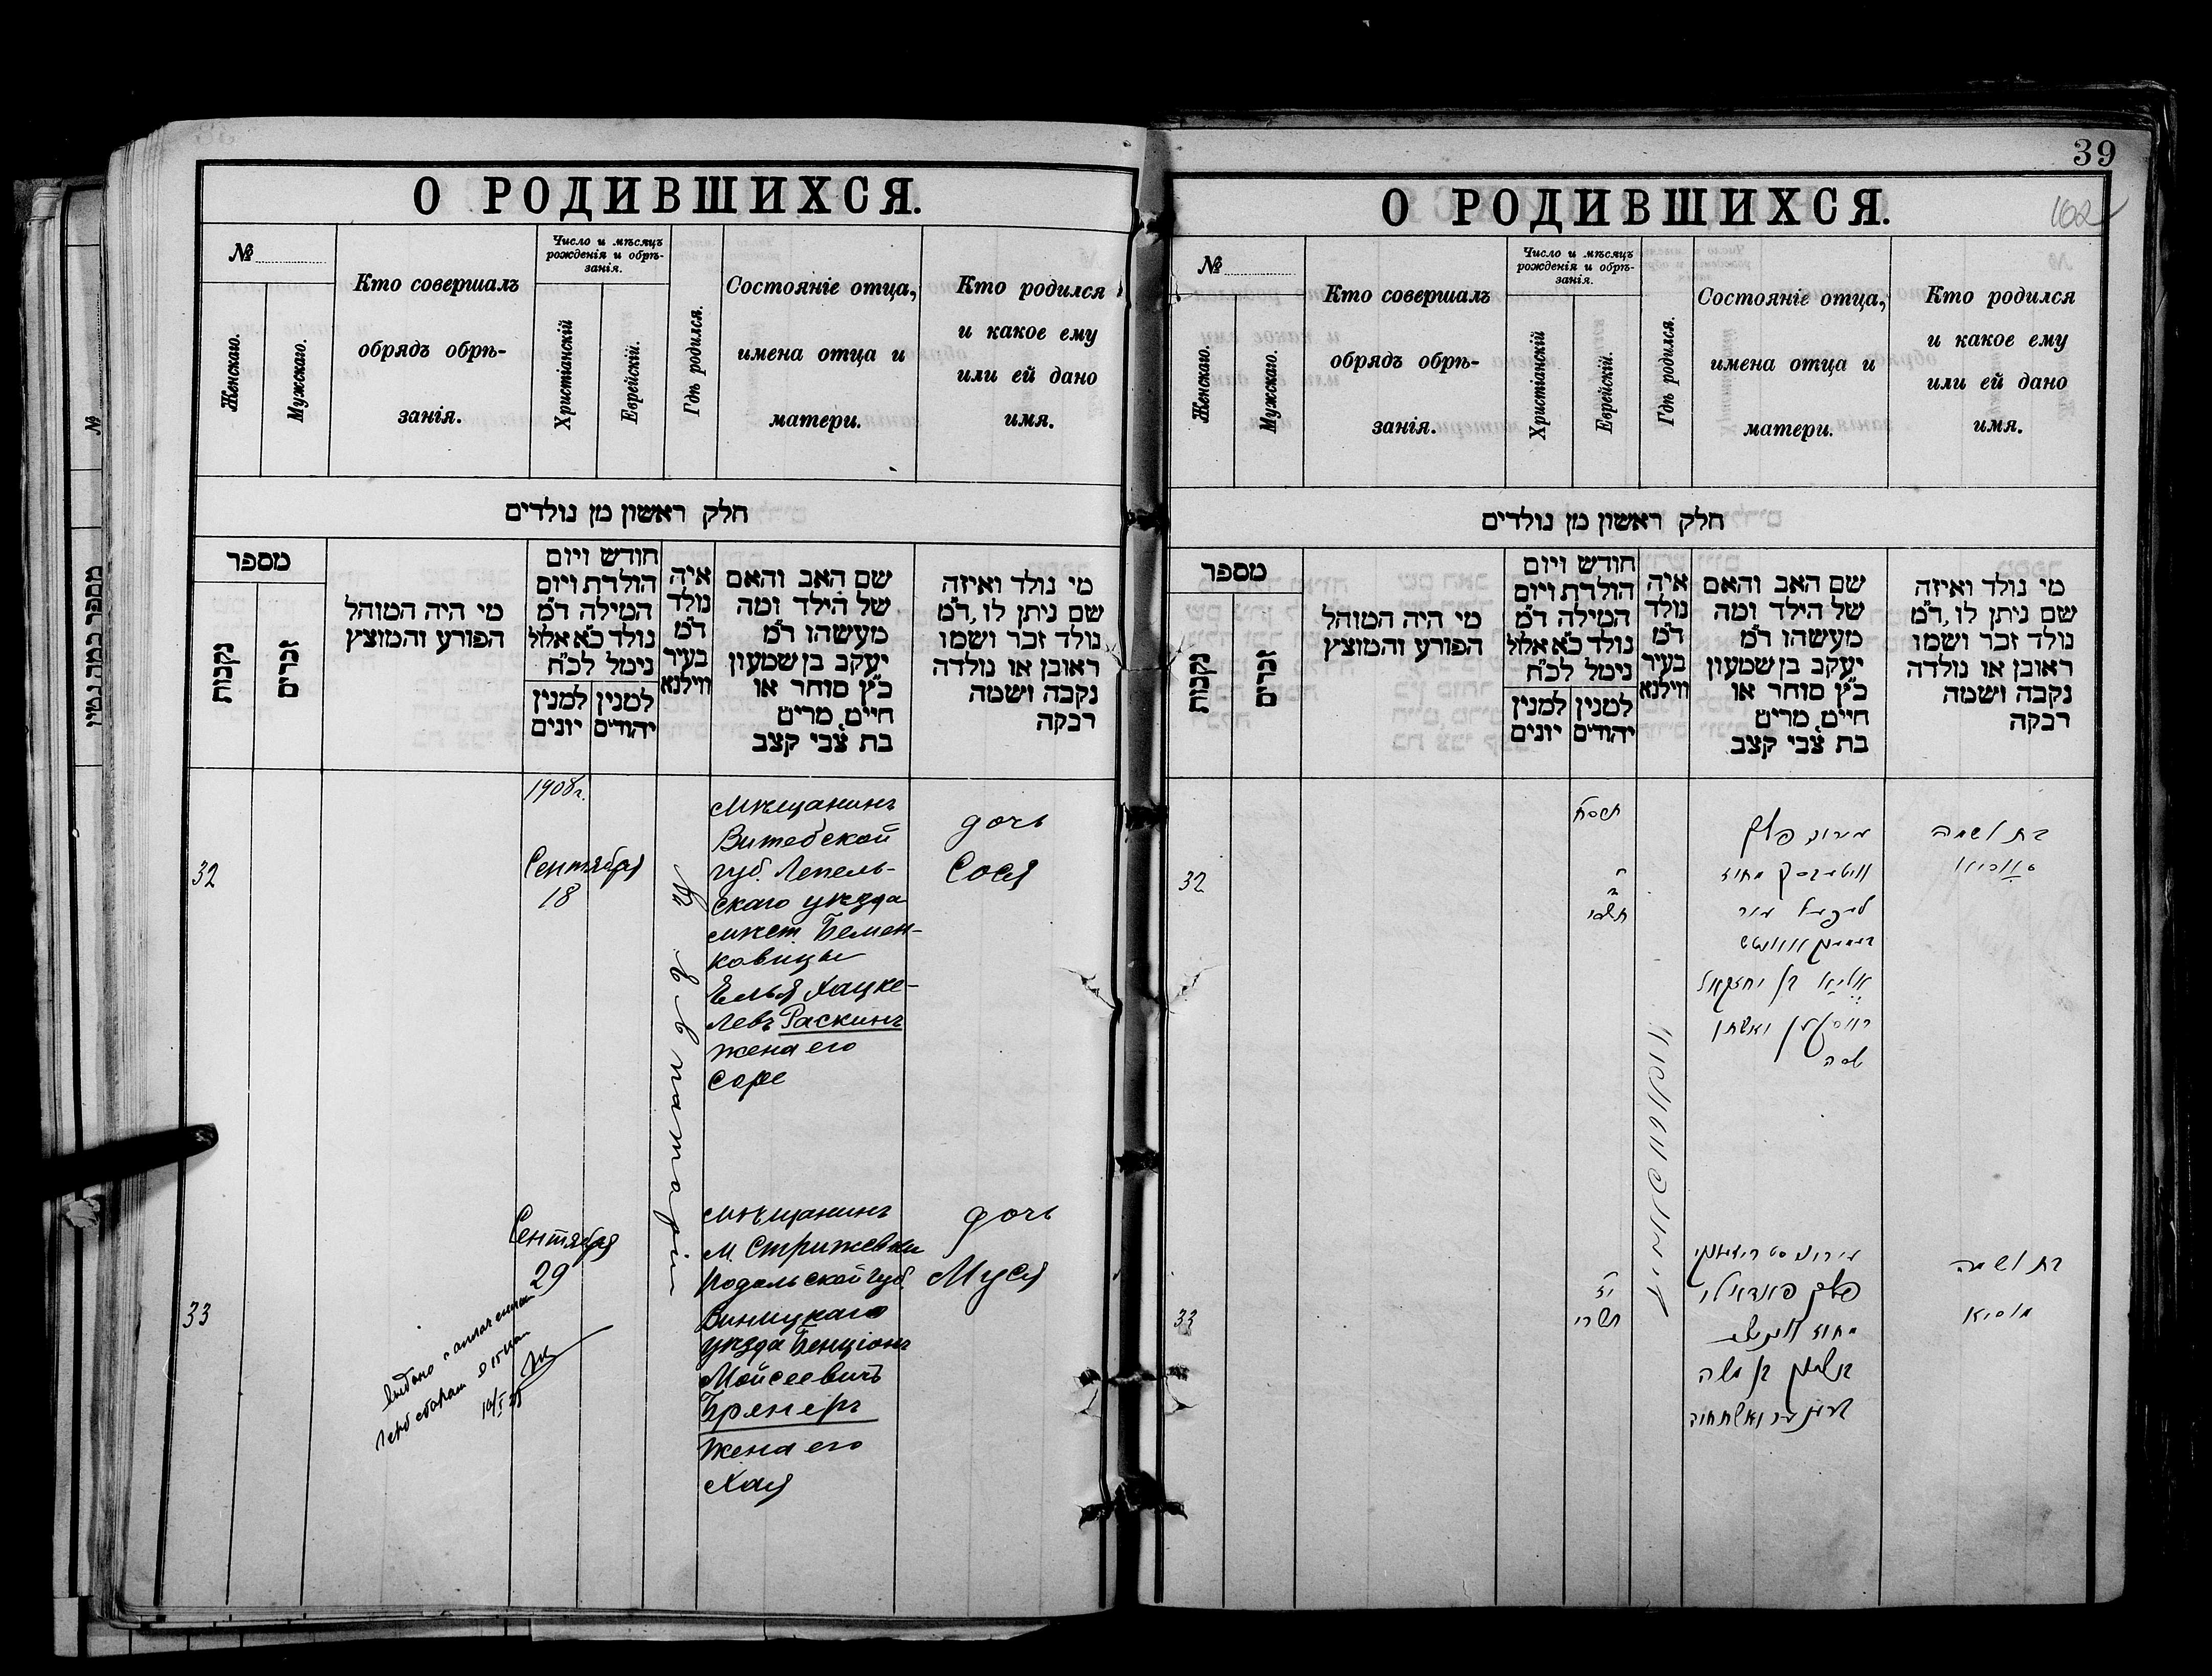 О РОДИВШИХСЯ.
№
Женскаго.
Мужскаго.
Кто совершалъ
обрядъ обрѣ-
занія.
Число и мѣсяцъ
рожденія и обрѣ-
занія.
Христіанскій
Еврейскій.
Гдѣ родился.
Состояніе отца,
имена отца и
матери.
Кто родился
и какое ему
или ей дано
имя.
חלק ראשון מן נולדים
מספר
נקבות
זכרים
מי היה המוהל
הפורע והמוצץ
חודש ויום
הולדת ויום
המילה ד״מ
נולד כ״א אלול
נימל לכ״ח
למנין
יונים
למנין
יהודים
איה
נולד
ד״מ
בעיר
ווילנא
שם האב והאם
של הילד ומה
מעשהו ד״מ
יעקב בן שמעון
כ״ץ סוחר או
חיים, מרים
בת צבי קצב
מי נולד ואיזה
שם ניתן לו, ד״מ
נולד זכר ושמו
ראובן או נולדה
נקבה ושמה
רבקה
32
1908г.
Сентября
18
мѣщанинъ
Витебской
губ. Лепель-
скаго уѣзда
мѣст. Бешен-
ковицы
Елья Хацке-
левъ Раскинъ
жена его
Соре
дочь
Сося
33
Сентября
29
мѣщанинъ
м. Стрижевки
Подольской губ.
Винницкаго
уѣзда Бенціонъ
Мойсеевичъ
Бренеръ
жена его
Хая
дочь
Муся
39
102
О РОДИВШИХСЯ.
№
Женскаго.
Мужскаго.
Кто совершалъ
обрядъ обрѣ-
занія.
Число и мѣсяцъ
рожденія и обрѣ-
занія.
Христіанскій
Еврейскій.
Гдѣ родился.
Состояніе отца,
имена отца и
матери.
Кто родился
и какое ему
или ей дано
имя.
חלק ראשון מן נולדים
מספר
נקבות
זכרים
מי היה המוהל
הפורע והמוצץ
חודש ויום
הולדת ויום
המילה ד״מ
נולד כ״א אלול
נימל לכ״ח
למנין
יונים
למנין
יהודים
איה
נולד
ד״מ
בעיר
ווילנא
שם האב והאם
של הילד ומה
מעשהו ד״מ
יעקב בן שמעון
כ״ץ סוחר או
חיים, מרים
בת צבי קצב
מי נולד ואיזה
שם ניתן לו, ד״מ
נולד זכר ושמו
ראובן או נולדה
נקבה ושמה
רבקה
32
תשרי
מחוז
אליא בן יחזקאל
ואשתו
שרה
בת ושמה
33
תשרי
מחוז
בן משה
בת ושמה
מוסיא